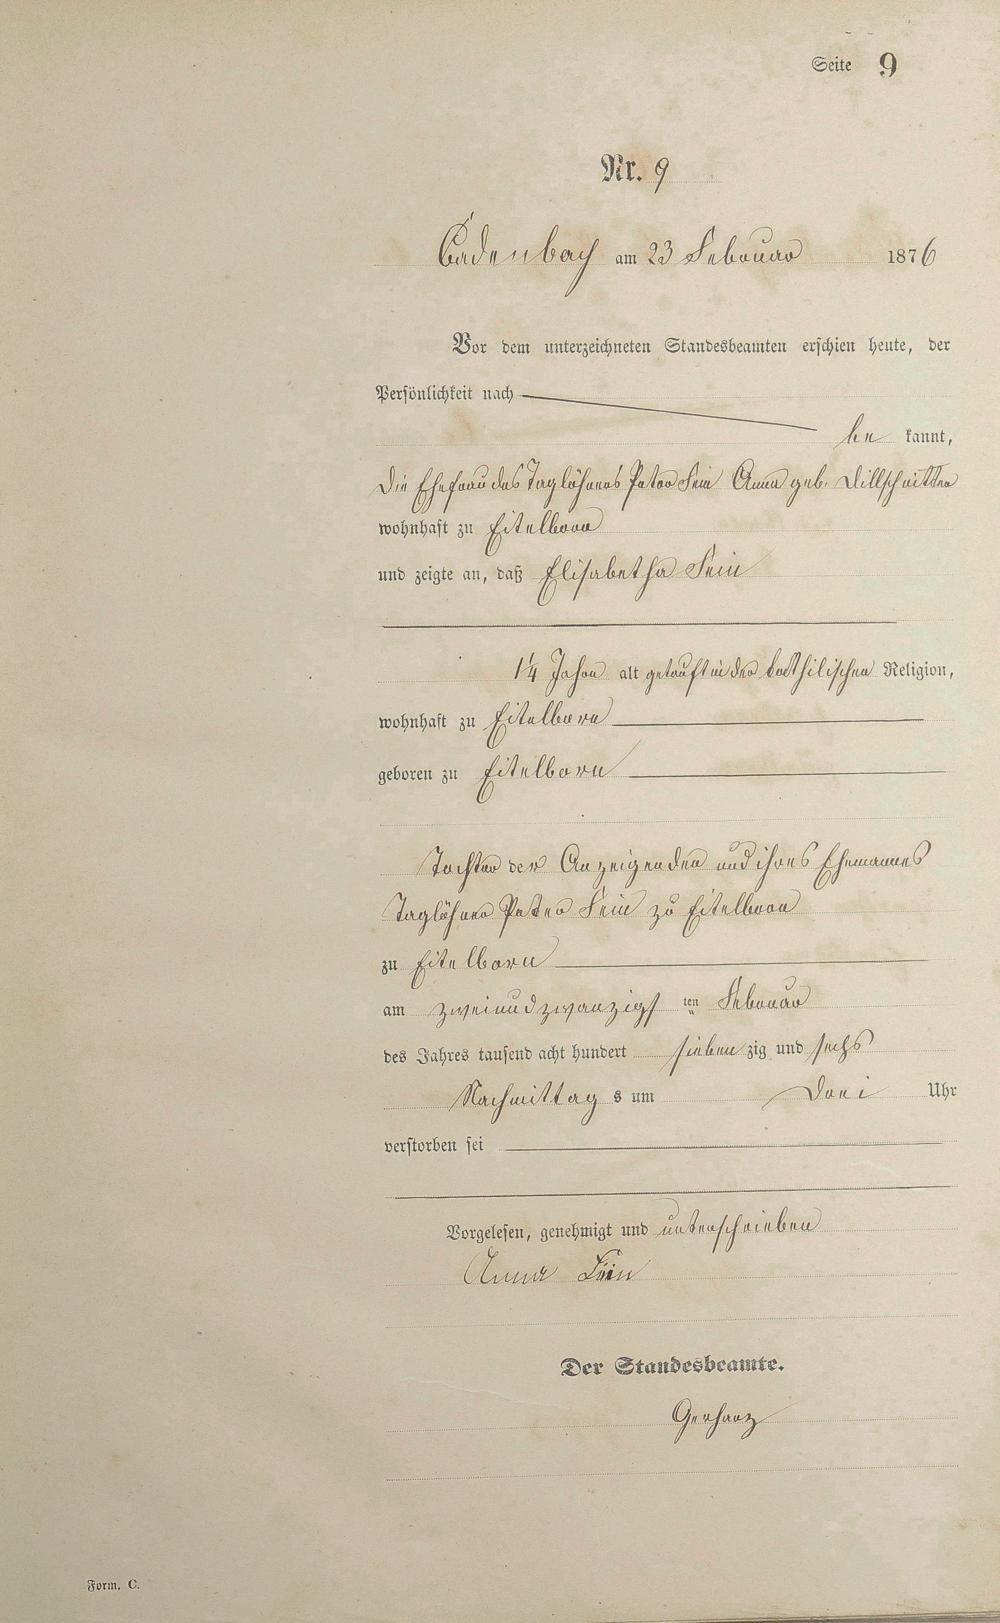 Seite 9
Nr. 9
Cadenbach am 23 Februar 1876
Vor dem unterzeichneten Standesbeamten erschien heute, der
Persönlichkeit nach
be kannt,
die Ehefrau des Taglöhners Peter Fein Anna geb. Dillschnitter
wohnhaft zu Eitelborn
und zeigte an, daß Elisabetha Fein
1¼ Jahre alt getauft in der katholischen Religion,
wohnhaft zu Eitelborn
geboren zu Eitelborn
Tochter der Anzeigenden und ihres Ehemannes
Taglöhner Peter Fein zu Eitelborn
zu Eitelborn
am zweiundzwanzigs ten Februar
des Jahres tausend acht hundert sieben zig und sechs
Nachmittag s um drei Uhr
verstorben sei
Vorgelesen, genehmigt und unterschrieben
Anna Fein
Der Standesbeamte.
Gerharz
Form. C.